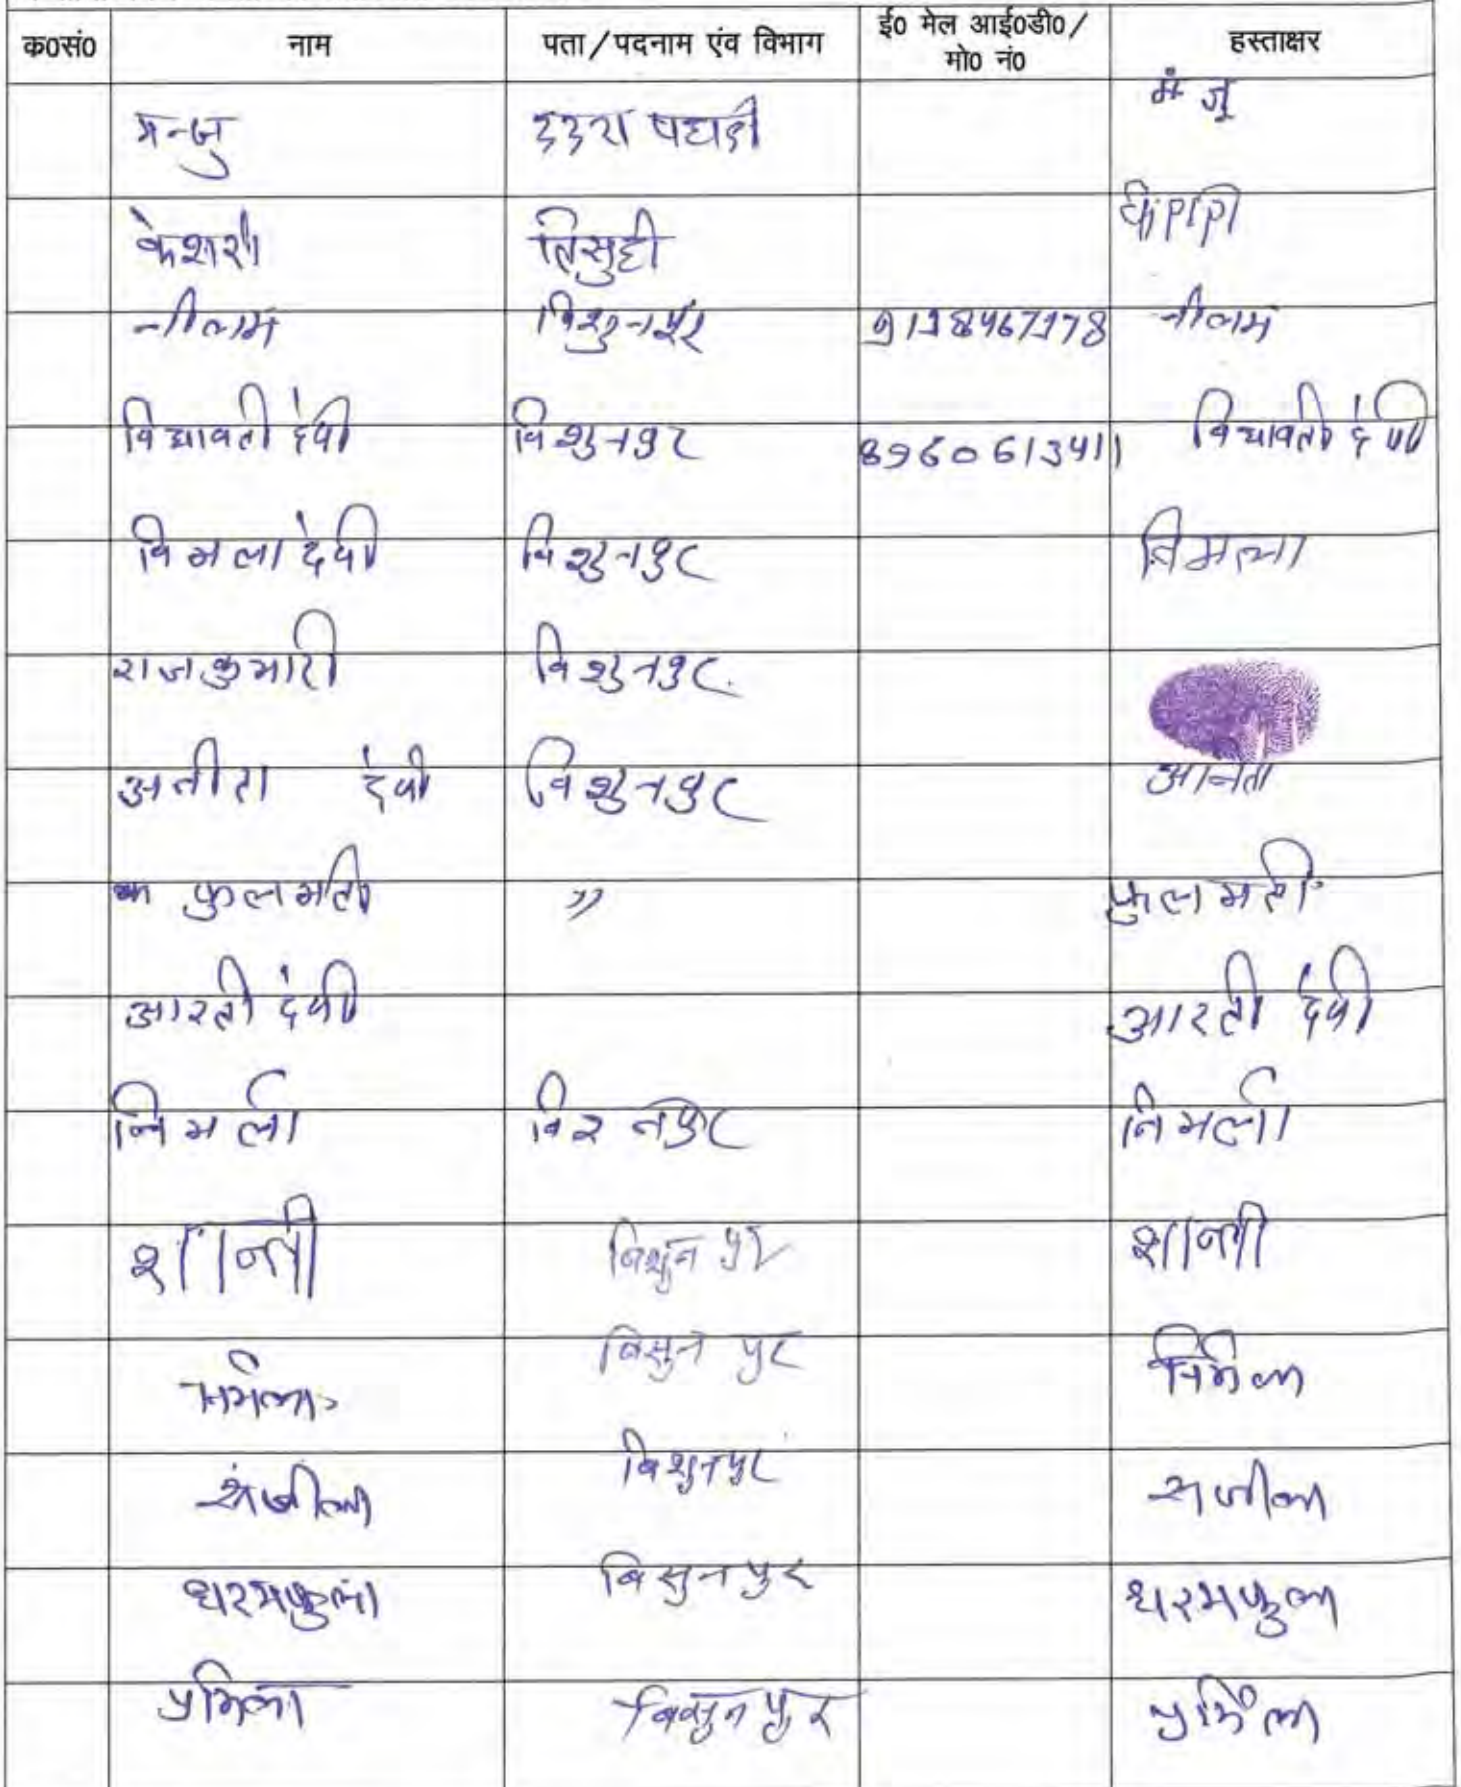 क०सं० नाम पता/पदनाम एंव विभाग ई० मेल आई०डी०/ मो० नं० हस्ताक्षर
मन्जु ददरा पहाडी मंजू
केशरी तिसुही
नीलम विशुनपुर 9118467178 नीलम
विद्यावती देवी विशुनपुर 8960613411 विद्यावती देवी
विमला देवी विशुनपुर विमला
राजकुमारी विशुनपुर.
अनीता देवी विशुनपुर अनिता
फुलमती " फुलमती
आरती देवी आरती देवी
निर्मला विशुनपुर निर्मला
शान्ती विशुन पुर शान्ती
निर्मला विसुन पुर निर्मला
संजीला विशुनपुर सजीला
धरमफुला विसुनपुर धरमफुला
प्रमिला विसुनपुर प्रमिला